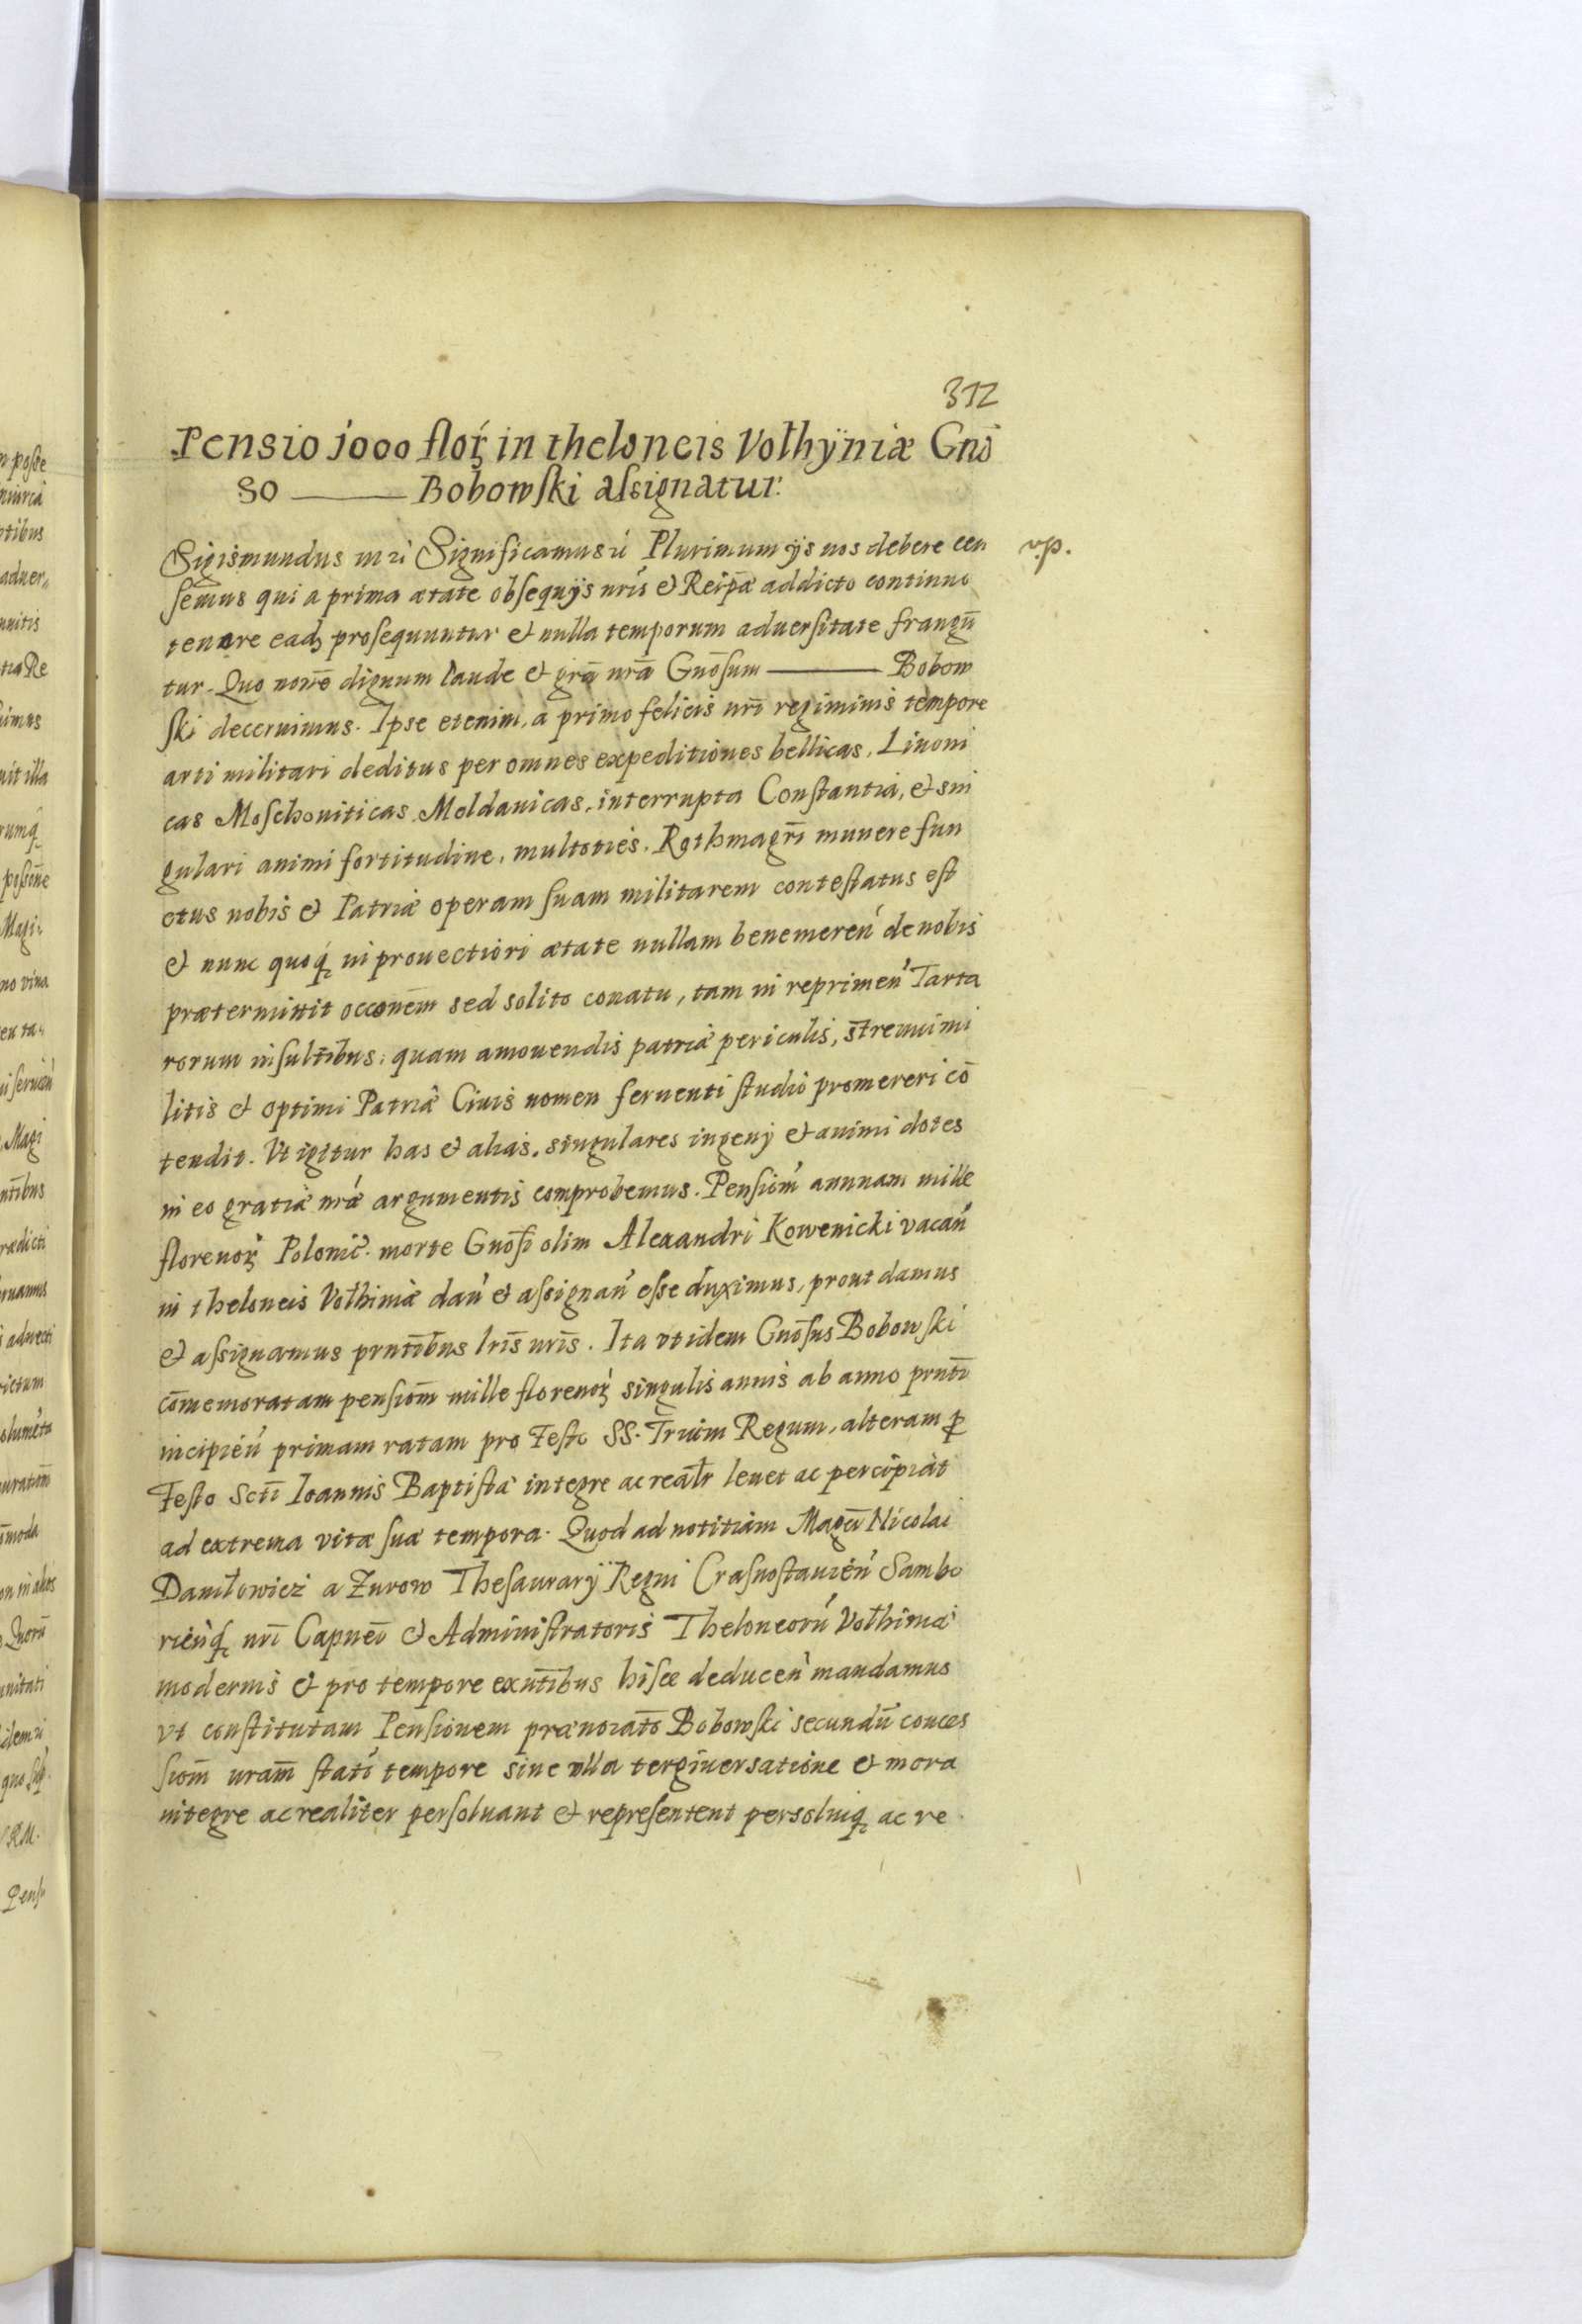 312
Pensio 1000 floꝝ in theloneis Vołhÿniæ Gnō
so ——— Bobowſki aſsignatur.
Sigismundus III &c Significamus &c Plurimum ijs nos debere cen v.p.
ſemus qui a prima ætate obſequijs nrīs et Reipæ addicto continuo
tenore eadȝ proſequuntur et nulla temporum aduerſitate frangū
tur. Quo nōne dignum laude et grā nrā Gnōſum ——— Bobow
ſki decernimus. Ipse etenim, a primo felicis nrī regiminis tempore
arti militari deditus per omnes expeditiones bellicas, Liuoni
cas Moſchouiticas Moldauicas, interrupta Constantia, et sin
gulari animi fortitudine, multoties, Rothmagrī munere fun
ctus nobis et Patriæ operam ſuam militarem conteſtatus eſt
et nunc quoqꝫ in prouectiori ætate nullam benemeren' de nobis
prætermittit occonēm sed solito conatu, tam in reprimen' Tarta
rorum inſultībus, quam amouendis patriæ periculis, strenui mi
litis et optimi Patriæ Ciuis nomen feruenti ſtudio promereri cō
tendit. Vt igitur has et alias, singulares ingenij et animi dotes
in eo gratiæ nræ argumentis comprobemus. Penſiom̄ annuam mille
florenoꝝ Polonic̄. morte Gnōſi olim Alexandri Kowenicki vacan'
in theloneis Vołhiniæ dan' et aſsignan' eſse duximus, prout damus
et aſsignamus prntībus lrīs nrīs. Ita vt idem Gnōſus Bobowſki
cōmemoratam penſiom̄ mille florenoꝝ singulis annis ab anno prntī
incipien' primam ratam pro Feſto SS. Trium Regum, alteram ꝓ
Feſto Sctī Ioannis Baptiſtæ integre ac realr̄ leuet ac percipiat
ad extrema vitæ ſuæ tempora. Quod ad notitiam Magcī Nicolai
Daniłowicz a Zurow Theſaurarÿ Regni Craſnoſtauien' Sambo
rien'qꝫ nrī Capnei et Adminiſtratoris Theloneorū Vołhiniæ
modernis et pro tempore exntībus hiſce deducen' mandamus
vt conſtitutam Penſionem prænotato Bobowſki secundū conces
ſiom̄ nram̄ ſtatī tempore sine vlla tergiuersatione et mora
integre ac realiter perſoluant et repreſentent persoluiqꝫ ac re